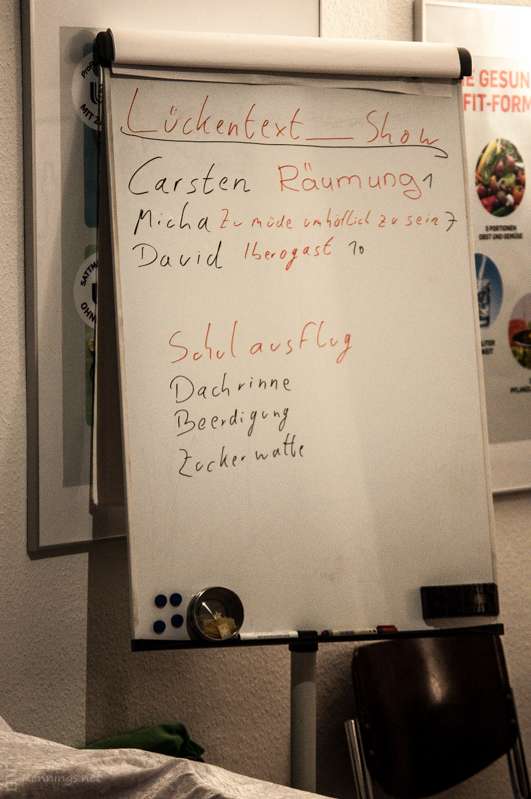 Lückentext_Show
Carsten Räumung 1
Micha Zu müde um höflich zu sein 7
David Iberogast 10
Schulausflug
Dachrinne
Beerdigung
Zuckerwatte
E GESUN
FIT-FORM
5 PORTIONEN
OBST UND GEMÜSE
MIT
SATTM
OHN
PFLANZ
Rennings.net